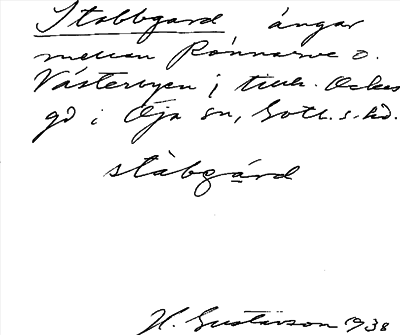 Stabbgard ängar
mellan Rönnarve o.
Västerbyen i tillh. Ockes
gd i Öja sn, Gotl. s. hd.
stàbgard
H. Gustavson 1938